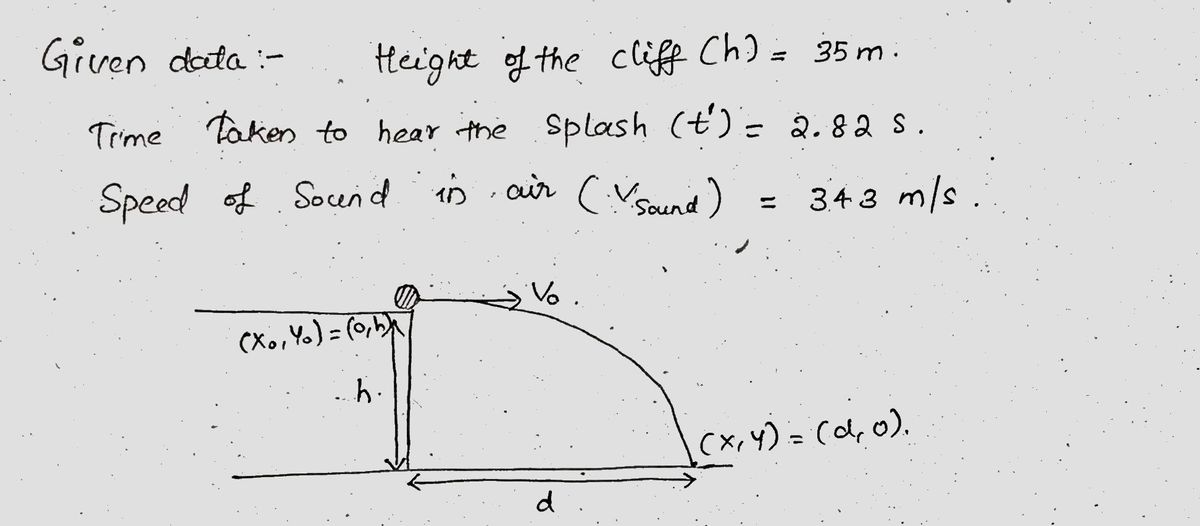 Given data :- Height of the cliff (h) = 35 m.
Time taken to hear the splash (t') = 2.82 s.
Speed of Sound in air (Vsound) = 343 m/s.
V₀.
(X₀, Y₀) = (0, h)
h.
(X, Y) = (d, 0).
d